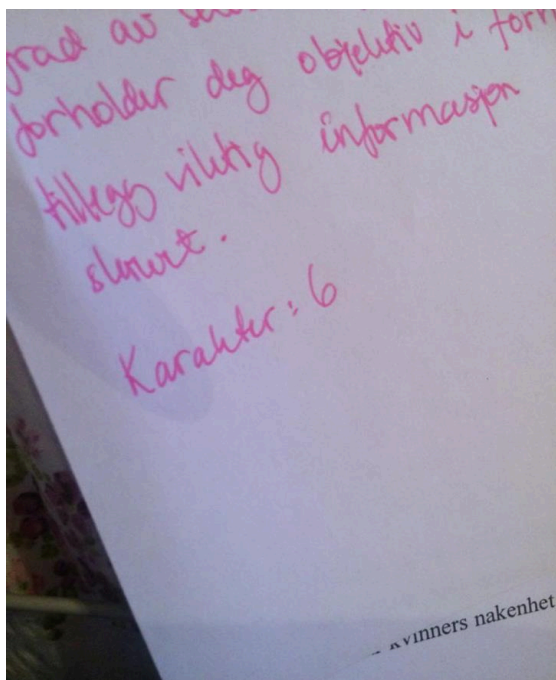 grad av
forholder deg objektiv i
tillegg viktig informasjon
Karakter: 6
kvinners nakenhet